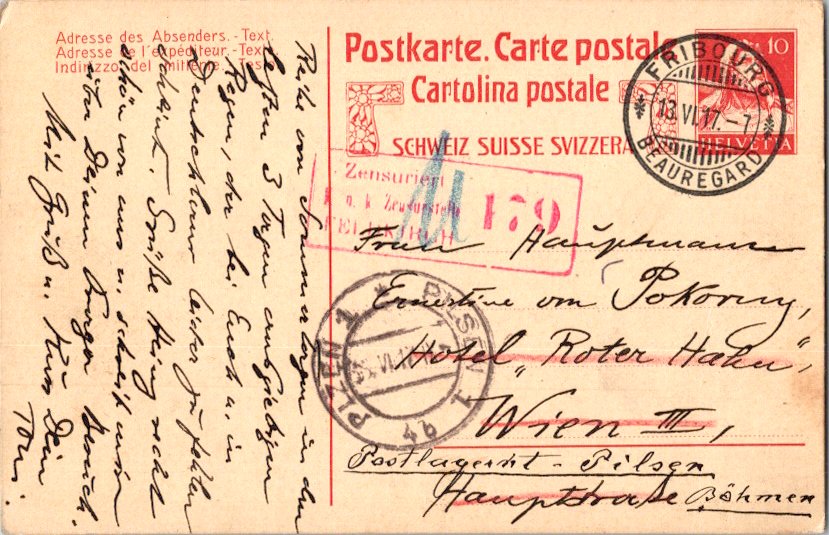 Adresse des Absenders. - Text.
Adresse de l'expéditeur. - Texte
Indirizzo del mittente. - Testo
Postkarte. Carte postale
Cartolina postale
SCHWEIZ SUISSE SVIZZERA
10
HELVETIA
FRIBOURG
13.VI.17.-7
BEAUREGARD
Zensuriert
k. u. k. Zensurstelle
FELDKIRCH
179
PILSEN 1
PLZEŇ 1
4b
Frau Hauptmann
Ernestine von Pokorny,
Hotel „Roter Hahn",
Wien III,
Postlagernd - Pilsen
Hauptstraße Böhmen
von Sommertagen in den
letzten 3 Tagen ausgiebigen
Regen, der bei Euch u. in
Deutschland leider zu fehlen
scheint. Grüße Heinz recht
schön von uns u. schreib mir
von Deinem Prager Besuch.
Mit Gruß u. Kuss Dein
Toni.